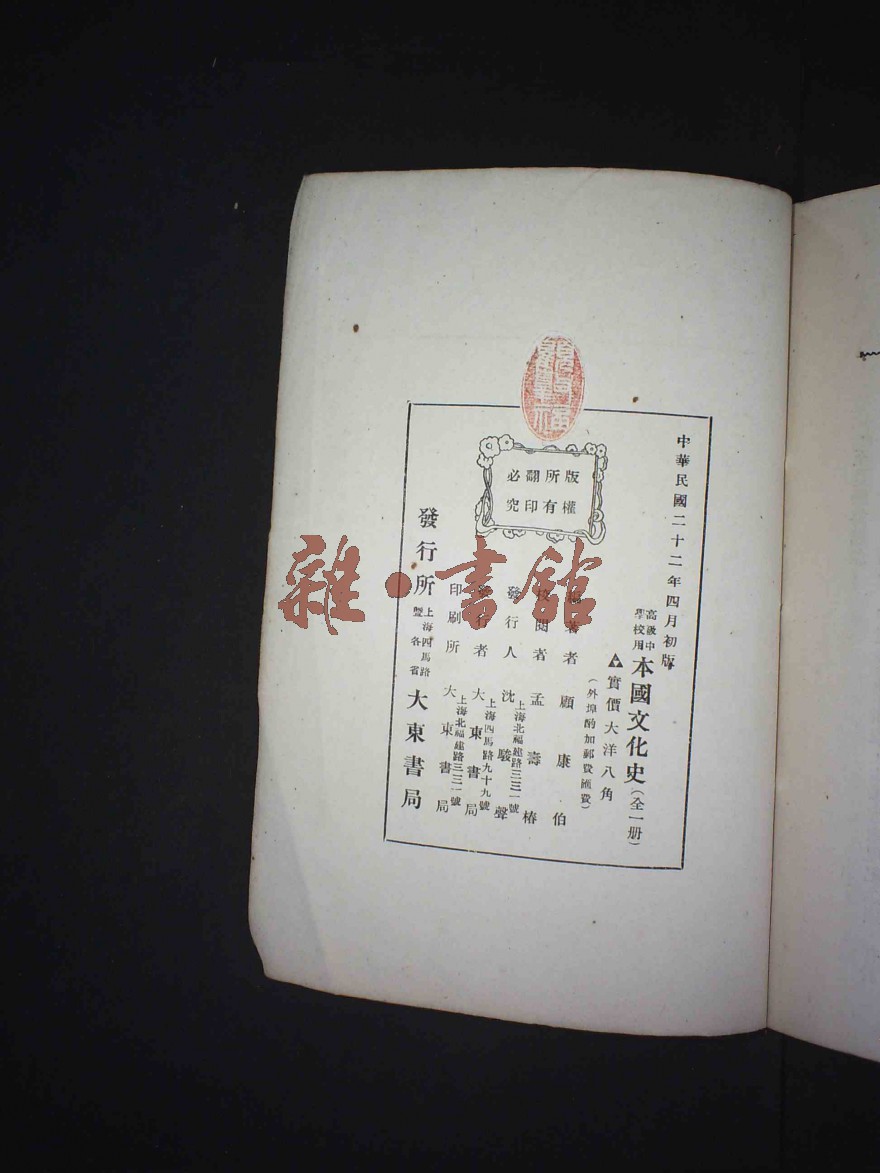 中華民國二十二年四月初版
高級中學校用
本國文化史(全一册)
實價大洋八角
(外埠酌加郵費匯費)
版權所有
翻印必究
編著者 顧康伯
校閱者 孟壽椿
發行人 沈駿聲
上海北福建路三三一號
發行者 大東書局
上海四馬路九十九號
印刷所 大東書局
上海北福建路三三一號
發行所 上海四馬路暨各省 大東書局
雜·書館